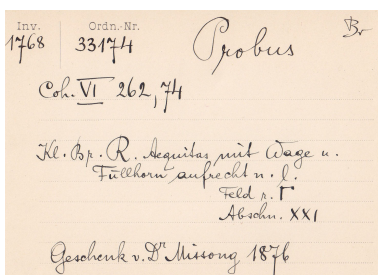 Inv. Ordn.-Nr. Br
1768 33174 Probus
Coh. VI 262,74
Kl. Br. R. Aequitas mit Wage u.
Füllhorn aufrecht n. l.
Feld r. Γ
Abschn. XXI
Geschenk v. Dr Missong 1876